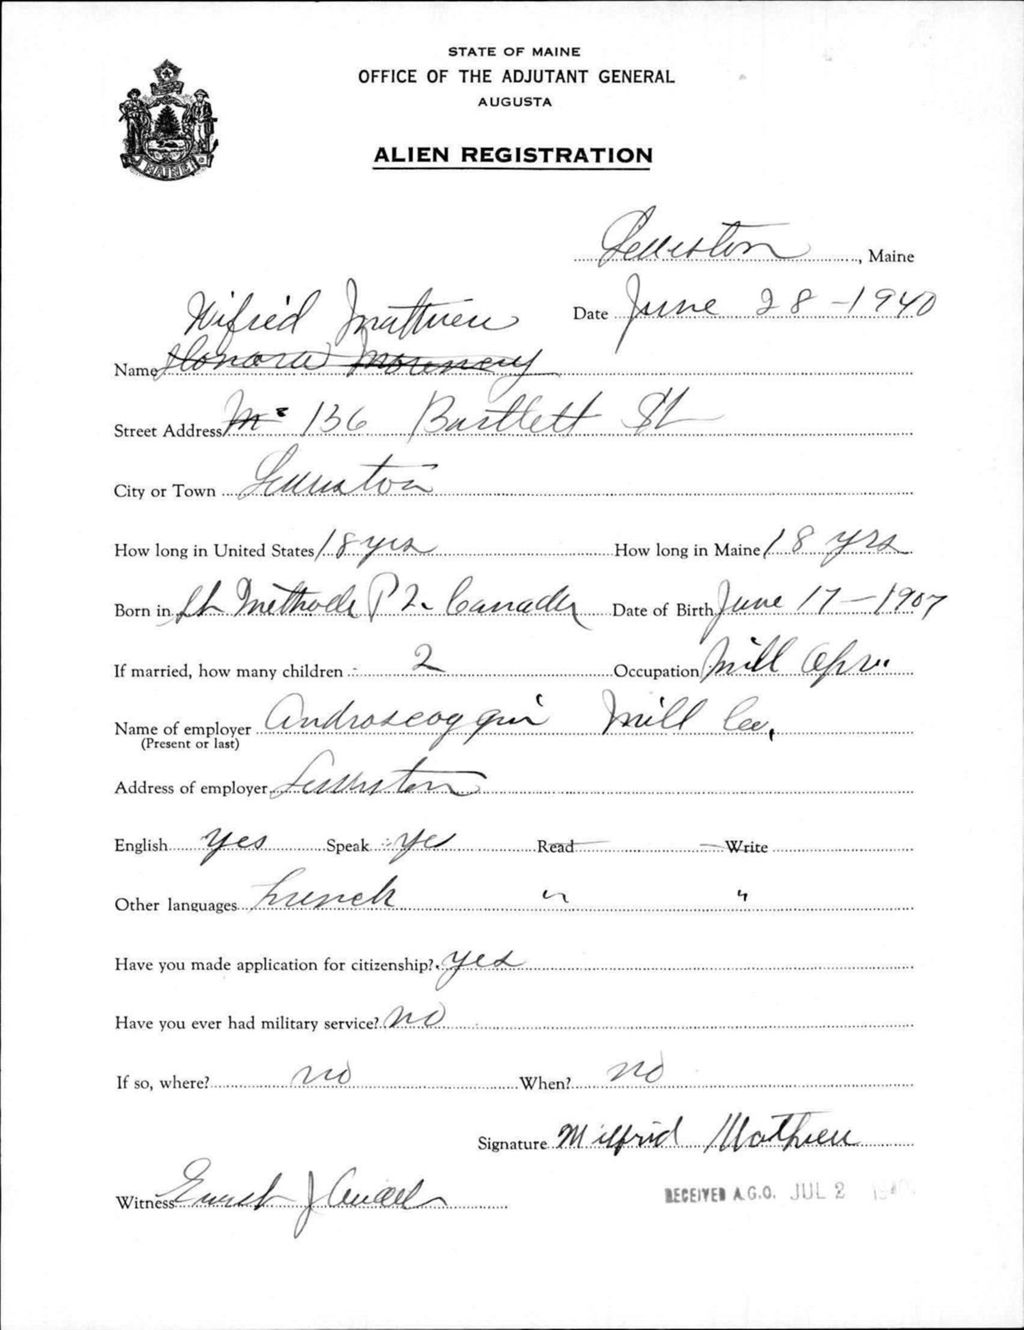 STATE OF MAINE
OFFICE OF THE ADJUTANT GENERAL
AUGUSTA
MAINE
ALIEN REGISTRATION
Lewiston, Maine
Date June 28-1940
Wilfrid Mathieu
Name
Street Address 136 Bartlett St
City or Town Lewiston
How long in United States 18 yrs How long in Maine 18 yrs
Born in St Methode P Q. Canada Date of Birth June 17-1907
If married, how many children 2 Occupation Mill Opr.
Name of employer Androscoggin Mill Co.
(Present or last)
Address of employer Lewiston
English yes Speak yes Read Write
Other languages French " "
Have you made application for citizenship? yes
Have you ever had military service? no
If so, where? no When? no
Signature Wilfrid Mathieu
Witness J
RECEIVED A.G.O. JUL 2 1940